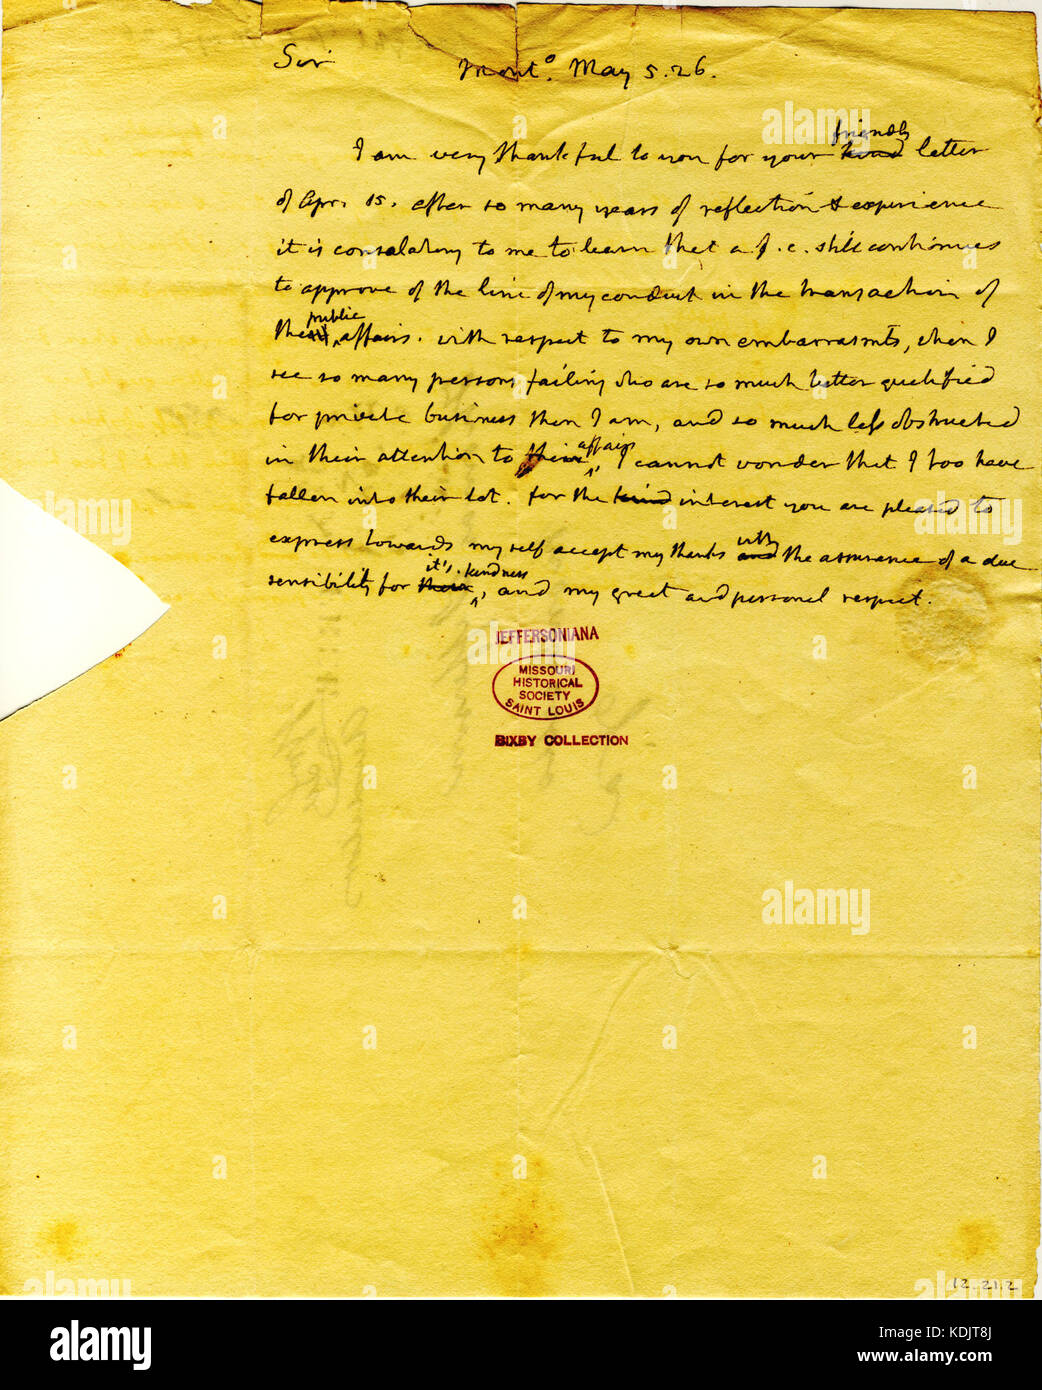 Sir Monto. May 5. 26.
friendly
I am very thankful to you for your kind letter
of Apr. 15. after so many years of reflection & experience
it is consolatory to me to learn that a f. c. still continues
to approve of the line of my conduct in the transaction of
public
their affairs. with respect to my own embarrasmts, when I
see so many persons failing who are so much better qualified
for private business than I am, and so much less obstructed
affairs
in their attention to their, I cannot wonder that I too have
fallen into their lot. for the kind interest you are pleased to
express towards myself accept my thanks and the assurance of a due
with
it's. kindness
sensibility for their, and my great and personal respect.
JEFFERSONIANA
MISSOURI
HISTORICAL
SOCIETY
SAINT LOUIS
BIXBY COLLECTION
12.21.2
alamy
alamy
alamy
alamy
alamy
alamy
a
alamy
Image ID: KDJT8J
www.alamy.com